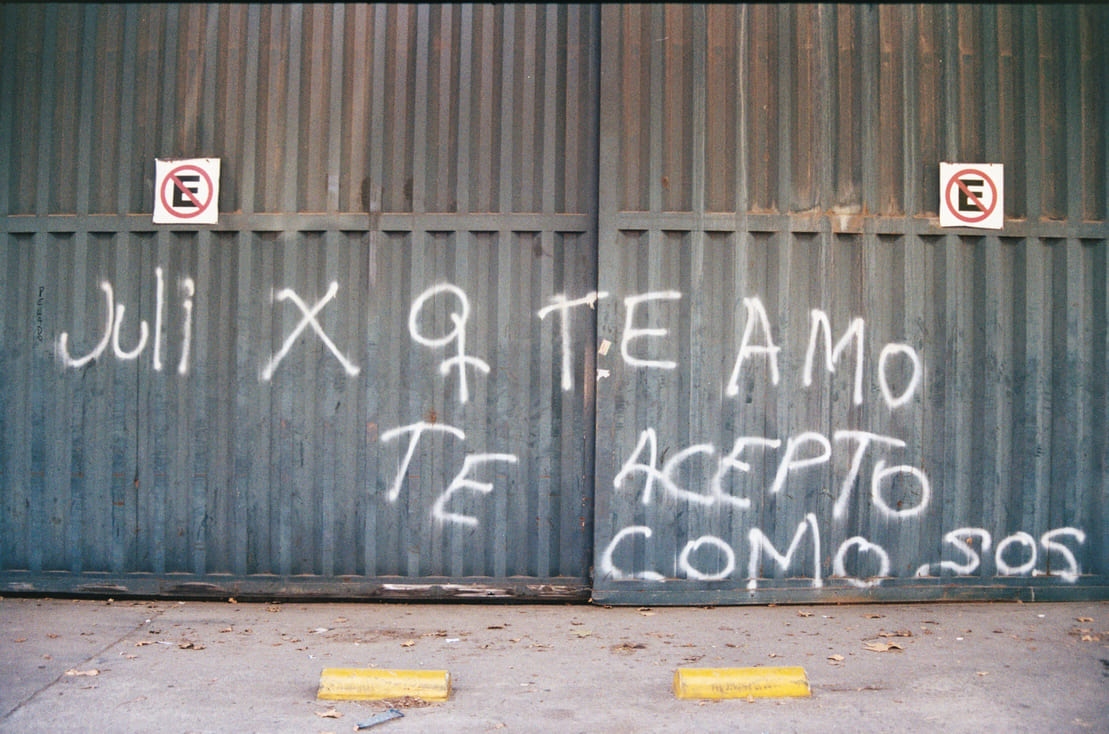 E
E
Juli X Q TE AMO
TE ACEPTO
COMO SOS